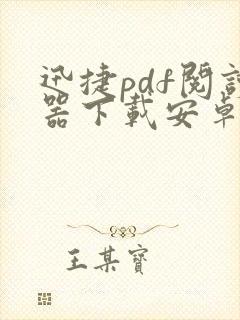 迅捷pdf閱讀
器下載安卓
王某寶